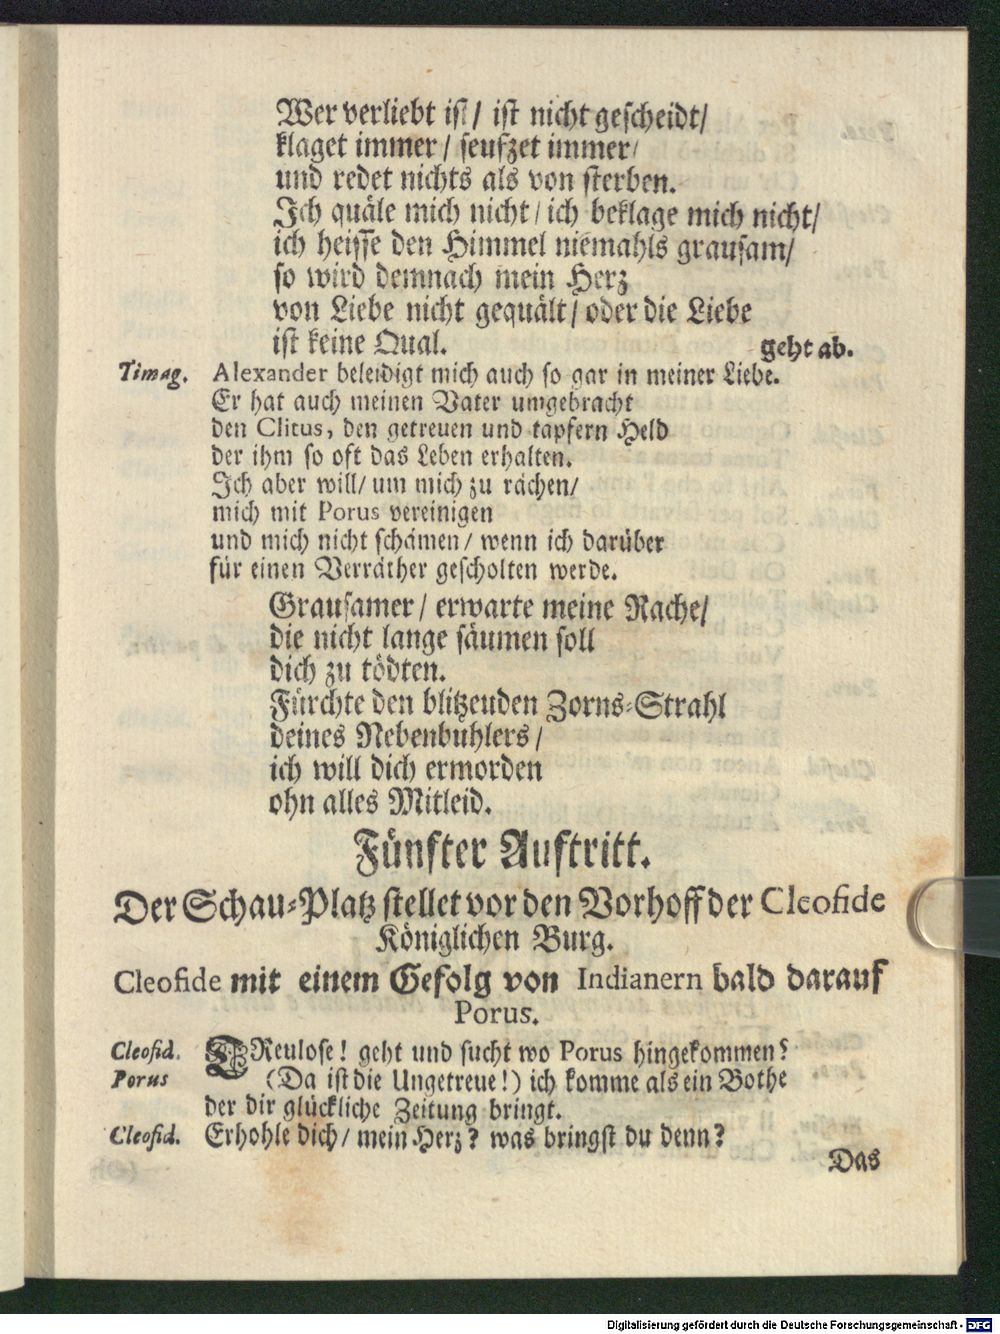 Wer verliebt ist/ ist nicht gescheidt/
klaget immer/ seufzet immer/
und redet nichts als von sterben.
Ich quäle mich nicht/ ich beklage mich nicht/
ich heisse den Himmel niemahls grausam/
so wird demnach mein Herz
von Liebe nicht gequält/ oder die Liebe
ist keine Qual. geht ab.
Timag. Alexander beleidigt mich auch so gar in meiner Liebe.
Er hat auch meinen Vater umgebracht
den Clitus, den getreuen und tapfern Held
der ihm so oft das Leben erhalten.
Ich aber will/ um mich zu rächen/
mich mit Porus vereinigen
und mich nicht schämen/ wenn ich darüber
für einen Verräther gescholten werde.
Grausamer/ erwarte meine Rache/
die nicht lange säumen soll
dich zu tödten.
Fürchte den blitzenden Zorns-Strahl
deines Nebenbuhlers/
ich will dich ermorden
ohn alles Mitleid.
Fünfter Auftritt.
Der Schau-Platz stellet vor den Vorhoff der Cleofide
Königlichen Burg.
Cleofide mit einem Gefolg von Indianern bald darauf
Porus.
Cleofid. TReulose! geht und sucht wo Porus hingekommen?
Porus (Da ist die Ungetreue!) ich komme als ein Bothe
der dir glückliche Zeitung bringt.
Cleofid. Erhohle dich/ mein Herz? was bringst du denn?
Das
Digitalisierung gefördert durch die Deutsche Forschungsgemeinschaft - DFG